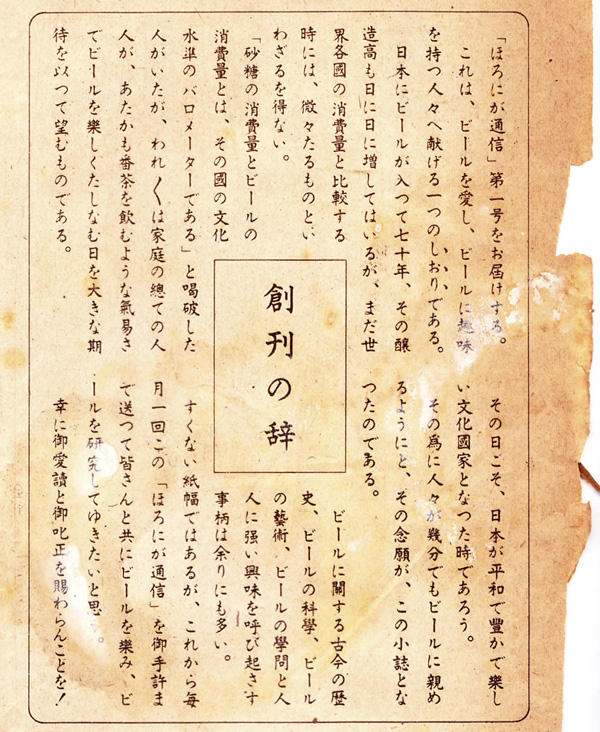 「ほろにが通信」第一号をお届けする。
これは、ビールを愛し、ビールに趣味
を持つ人々へ献げる一つのしおりである。
日本にビールが入つて七十年、その醸
造高も日に日に増してはいるが、まだ世
界各國の消費量と比較する
時には、微々たるものとい
わざるを得ない。
「砂糖の消費量とビールの
消費量とは、その國の文化
水準のバロメーターである」と喝破した
人がいたが、われ〳〵は家庭の總ての人
人が、あたかも番茶を飲むような氣易さ
でビールを樂しくたしなむ日を大きな期
待を以つて望むものである。
創刊の辞
その日こそ、日本が平和で豊かで樂し
い文化國家となつた時であろう。
その爲に人々が幾分でもビールに親め
るようにと、その念願が、この小誌とな
つたのである。
ビールに關する古今の歴
史、ビールの科學、ビール
の藝術、ビールの學問と人
人に强い興味を呼び起さす
事柄は余りにも多い。
すくない紙幅ではあるが、これから毎
月一回この「ほろにが通信」を御手許ま
で送つて皆さんと共にビールを樂み、ビ
ールを研究してゆきたいと思う。
幸に御愛讀と御叱正を賜わらんことを！